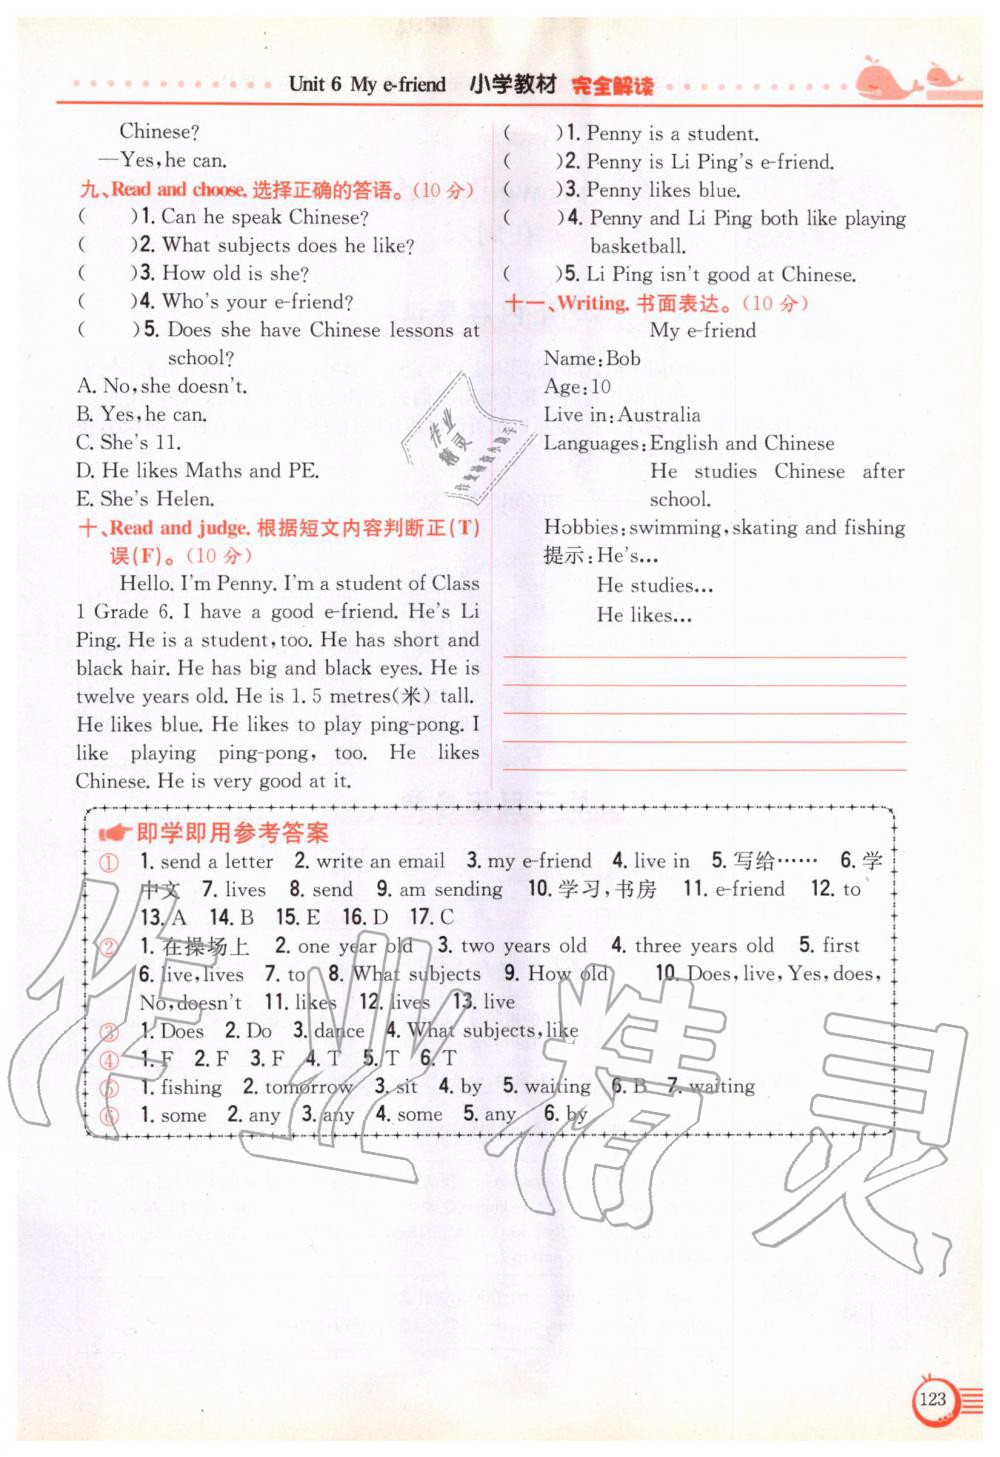 Unit 6 My e-friend 小学教材 完全解读
Chinese?
—Yes, he can.
九、Read and choose. 选择正确的答语。(10 分)
( )1. Can he speak Chinese?
( )2. What subjects does he like?
( )3. How old is she?
( )4. Who's your e-friend?
( )5. Does she have Chinese lessons at
school?
A. No, she doesn't.
B. Yes, he can.
C. She's 11.
D. He likes Maths and PE.
E. She's Helen.
十、Read and judge. 根据短文内容判断正(T)
误(F)。(10 分)
Hello. I'm Penny. I'm a student of Class
1 Grade 6. I have a good e-friend. He's Li
Ping. He is a student, too. He has short and
black hair. He has big and black eyes. He is
twelve years old. He is 1.5 metres(米) tall.
He likes blue. He likes to play ping-pong. I
like playing ping-pong, too. He likes
Chinese. He is very good at it.
( )1. Penny is a student.
( )2. Penny is Li Ping's e-friend.
( )3. Penny likes blue.
( )4. Penny and Li Ping both like playing
basketball.
( )5. Li Ping isn't good at Chinese.
十一、Writing. 书面表达。(10 分)
My e-friend
Name: Bob
Age: 10
Live in: Australia
Languages: English and Chinese
He studies Chinese after
school.
Hobbies: swimming, skating and fishing
提示: He's...
He studies...
He likes...
即学即用参考答案
① 1. send a letter 2. write an email 3. my e-friend 4. live in 5. 写给…… 6. 学
中文 7. lives 8. send 9. am sending 10. 学习,书房 11. e-friend 12. to
13. A 14. B 15. E 16. D 17. C
② 1. 在操场上 2. one year old 3. two years old 4. three years old 5. first
6. live, lives 7. to 8. What subjects 9. How old 10. Does, live, Yes, does,
No, doesn't 11. likes 12. lives 13. live
③ 1. Does 2. Do 3. dance 4. What subjects, like
④ 1. F 2. F 3. F 4. T 5. T 6. T
⑤ 1. fishing 2. tomorrow 3. sit 4. by 5. waiting 6. B 7. waiting
⑥ 1. some 2. any 3. any 4. some 5. any 6. by
作业精灵
作业
精灵
123